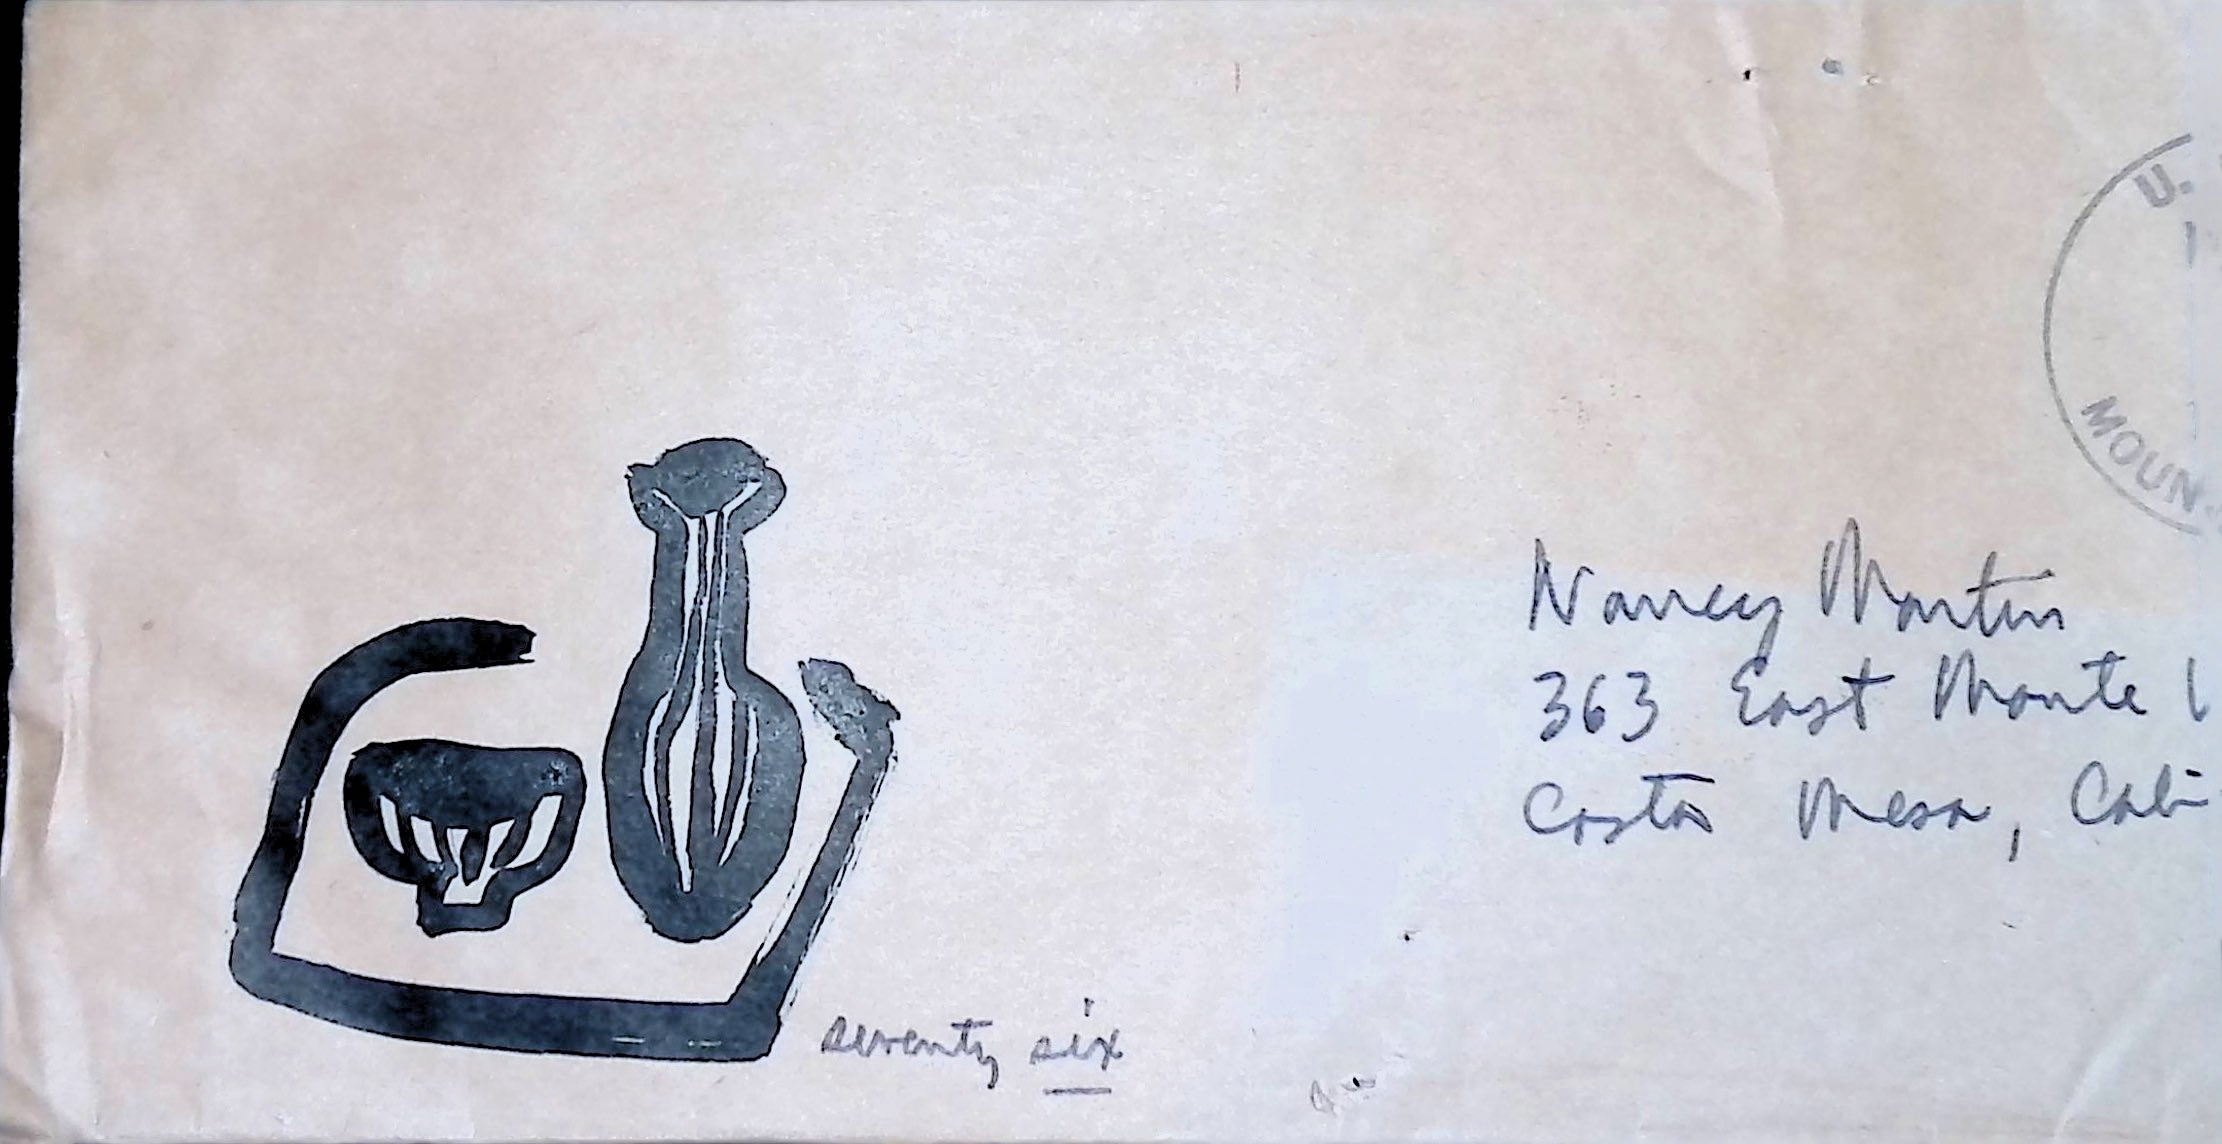 U.
MOUN
Nancy Martin
363 East Monte
Costa Mesa, Cali
seventy six